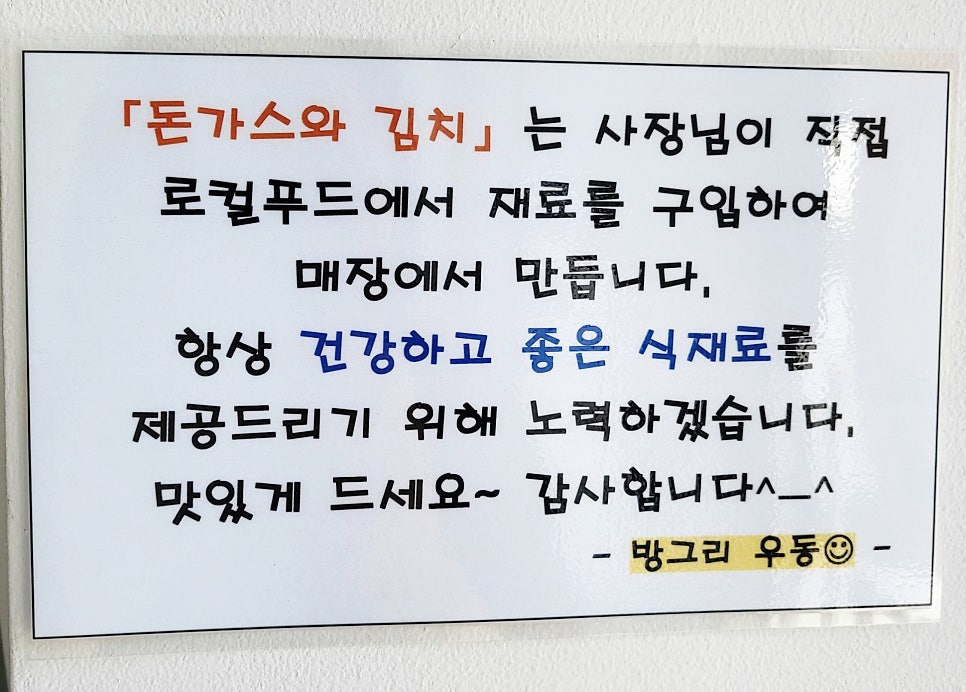 「돈가스와 김치」 는 사장님이 직접
로컬푸드에서 재료를 구입하여
매장에서 만듭니다.
항상 건강하고 좋은 식재료를
제공드리기 위해 노력하겠습니다.
맛있게 드세요~ 감사합니다^_^
- 방그리 우동☺ -